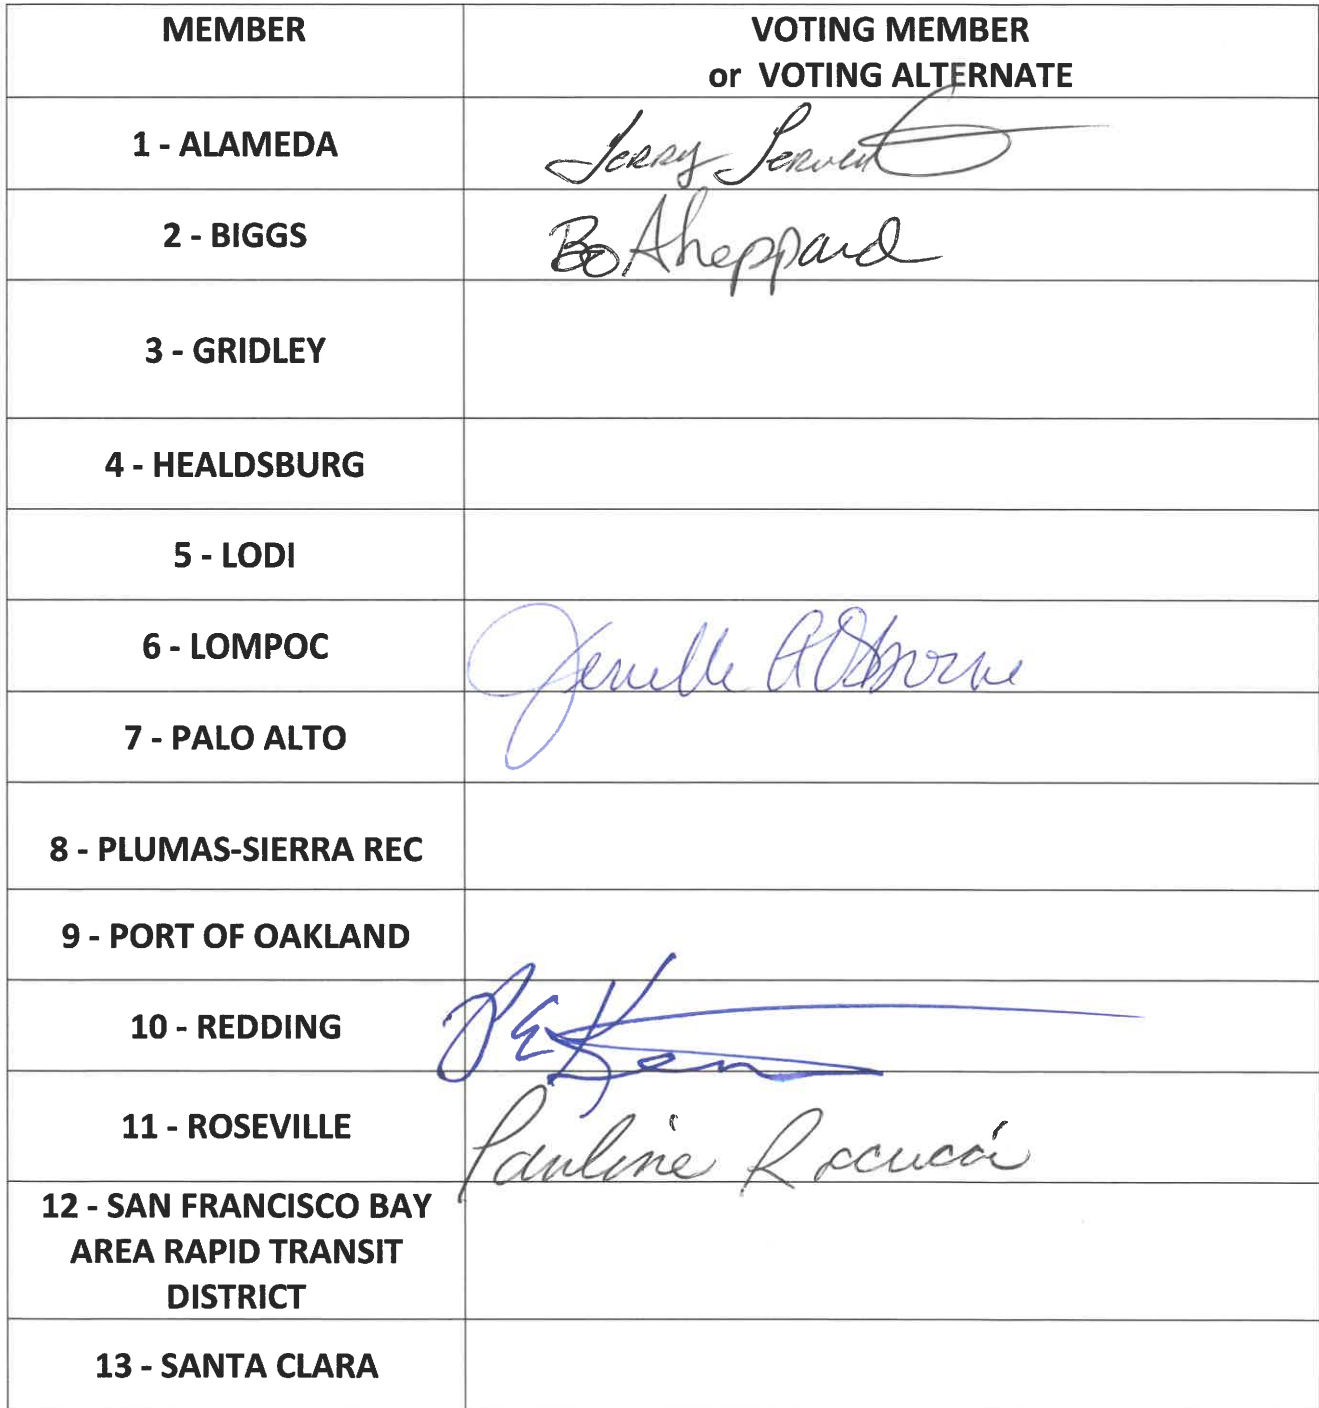 MEMBER
VOTING MEMBER
or VOTING ALTERNATE
1 - ALAMEDA
Jerry Servent
2 - BIGGS
Bo Sheppard
3 - GRIDLEY
4 - HEALDSBURG
5 - LODI
6 - LOMPOC
Jenelle A Osborne
7 - PALO ALTO
8 - PLUMAS-SIERRA REC
9 - PORT OF OAKLAND
10 - REDDING
11 - ROSEVILLE
Pauline Roccucci
12 - SAN FRANCISCO BAY
AREA RAPID TRANSIT
DISTRICT
13 - SANTA CLARA